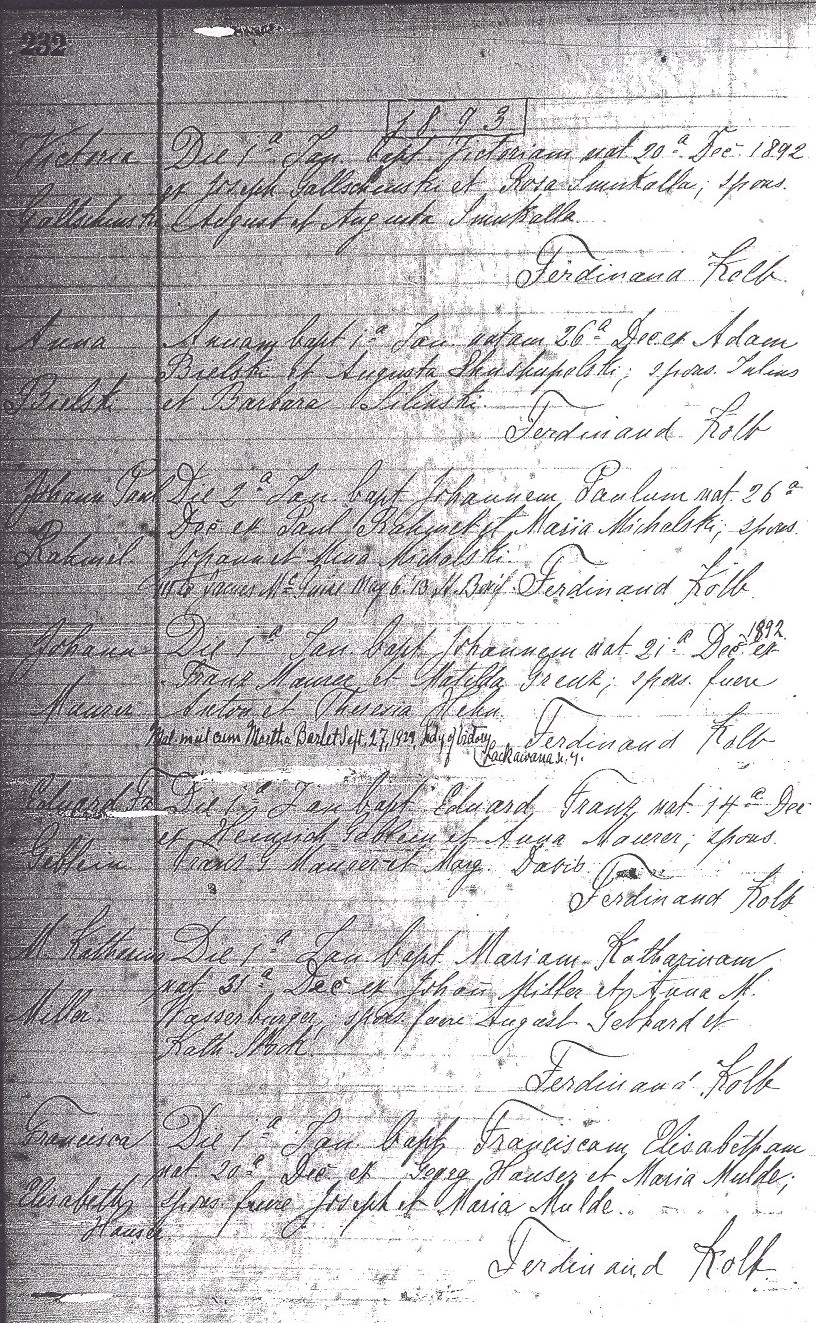 232
1893
Victoria Die 1ª Jan. bapt. Victoriam nat 20ª Dec 1892
ex Joseph Gallschinski et Rosa Smukalla; spons.
Gallschinski August et Augusta Smukalla.
Ferdinand Kolb.
Anna Annam bapt 1ª Jan natam 26ª Dec ex Adam
Bielski et Augusta; spons. Julius
Bielski et Barbara Silinski.
Ferdinand Kolb
Johann Paul Die 2ª Jan bapt Johannem Paulum nat. 26ª
Dec ex Paul Rahmel et Maria Michalski; spons.
Rahmel Johann et Michalski.
James May 6. '13 Ferdinand Kolb.
Johann Die 1ª Jan bapt Johannem nat 21ª Dec. 1892 ex
Franz Maurer et Matilda Grenz; spons. fuere
Maurer Anton et Theresia Hehn
Mat. cum Martha Barlet Sept. 27, 1939, Lady of Victory Ferdinand Kolb
Lackawana N.Y.
Eduard Fz Die 1ª Jan bapt. Eduard Franz nat. 14ª Dec
ex Heinrich Geblein et Anna Maurer; spons.
Geblein Franz Maurer et Marg. David
Ferdinand Kolb
M. Katharina Die 1ª Jan bapt. Mariam Katharinam
nat 31ª Dec ex Johan Miller et Anna M.
Miller. Wasserburger, spons fuere August Gebhard et
Kath.
Ferdinand Kolb
Francisca Die 1ª Jan bapt Franciscam Elisabetham
nat 20ª Dec ex Georg Hauser et Maria Mulde;
Elisabeth spons fuere Joseph et Maria Mulde.
Hauser
Ferdinand Kolb.